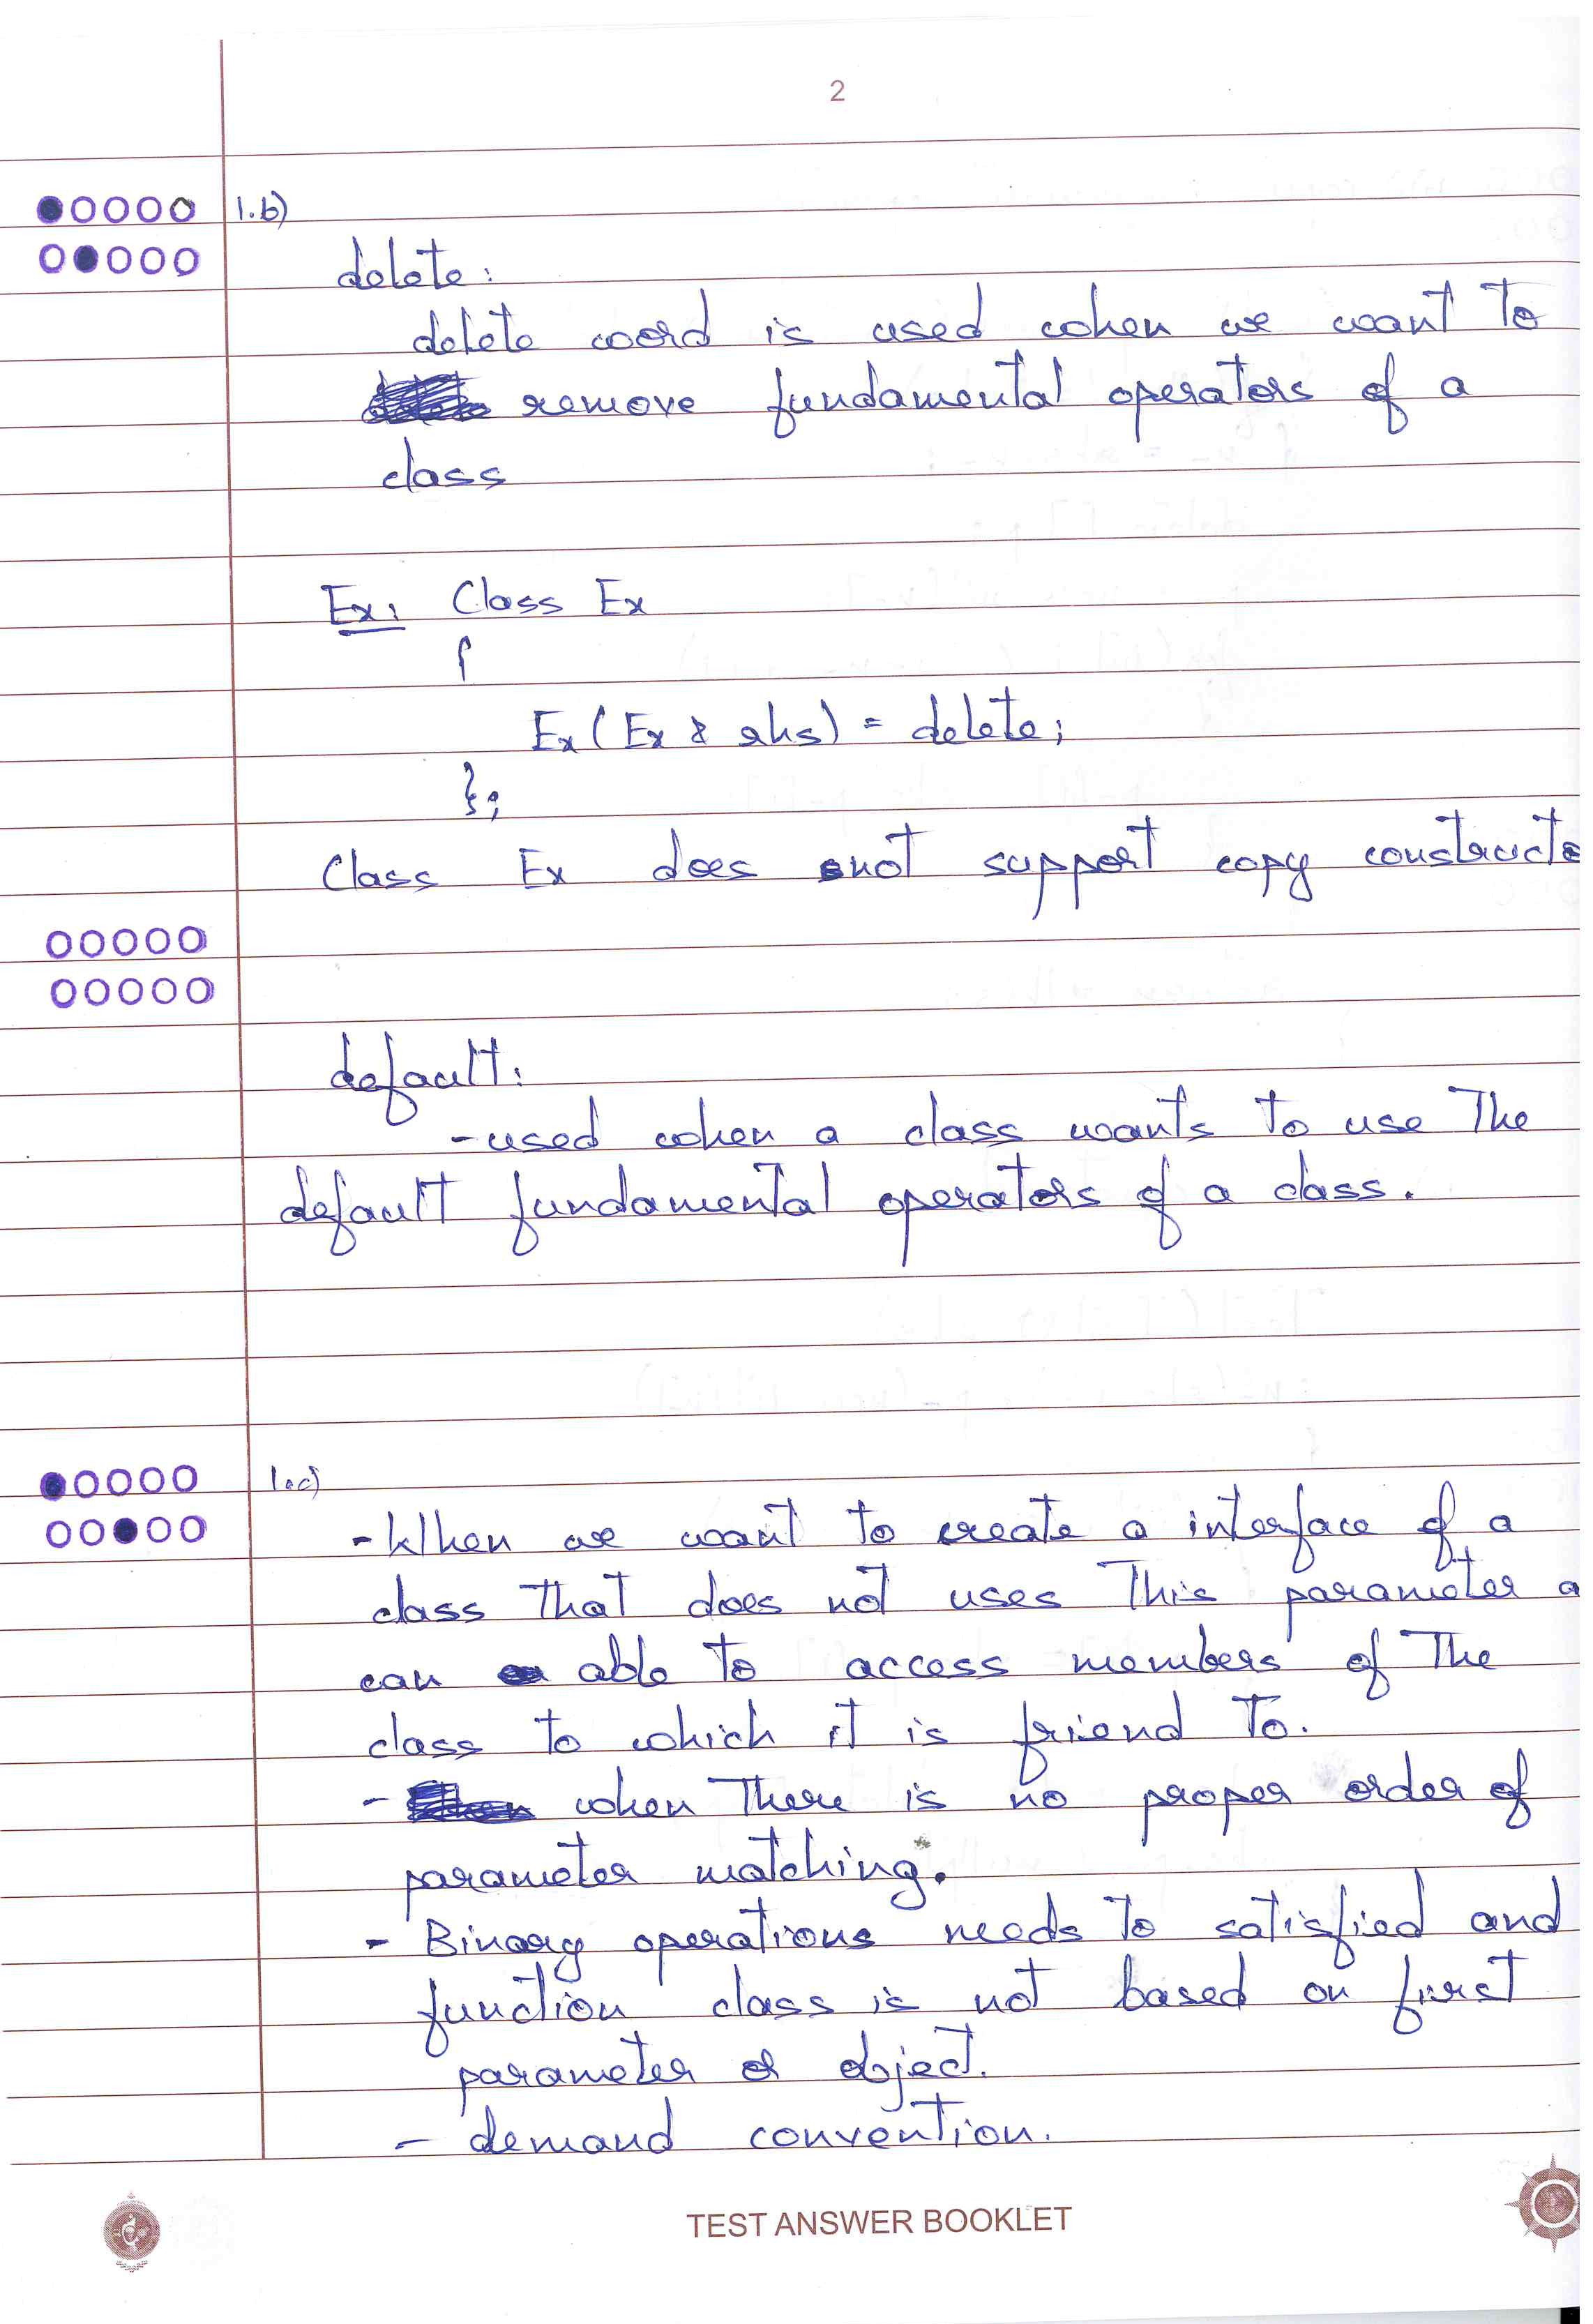 2
1.b)
delete:
delete word is used when we want to
remove fundamental operators of a
class
Ex: Class Ex
{
Ex(Ex & rhs) = delete;
};
Class Ex does not support copy constructo
default:
-used when a class wants to use the
default fundamental operators of a class.
1.c)
- When we want to create a interface of a
class that does not uses this parameter a
can able to access members of the
class to which it is friend to.
- when there is no proper order of
parameter matching.
- Binary operations needs to satisfied and
function class is not based on first
parameter or object.
- demand convention.
TEST ANSWER BOOKLET